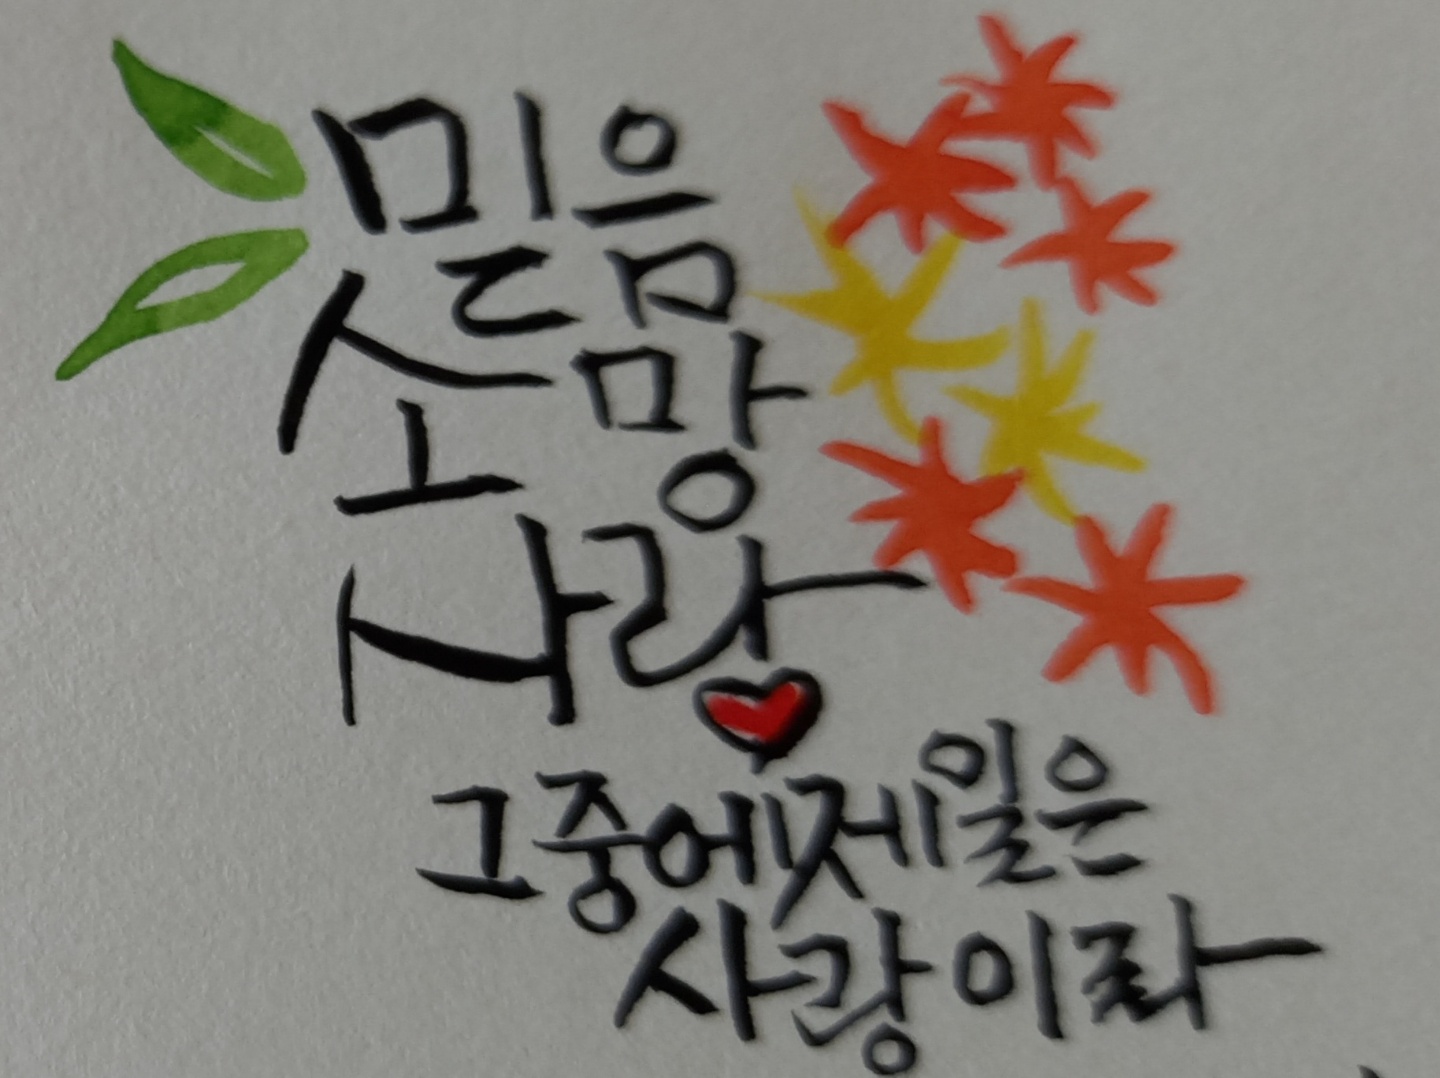 믿음
소망
사랑
그중에제일은
사랑이라